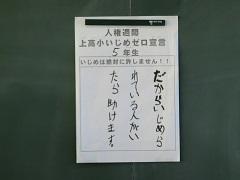 人権週間
上高小いじめゼロ宣言
5年生
いじめは絶対に許しません！！
だからいじめら
れている人がい
たら助けます。